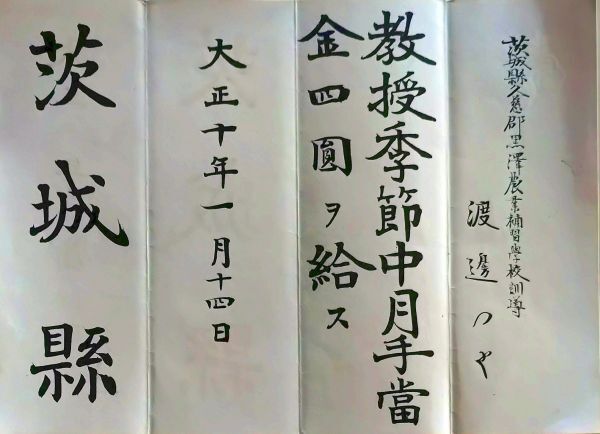 茨城縣久慈郡黒澤農業補習學校訓導
渡邊つや
教授季節中月手當
金四圓ヲ給ス
大正十年一月十四日
茨城縣